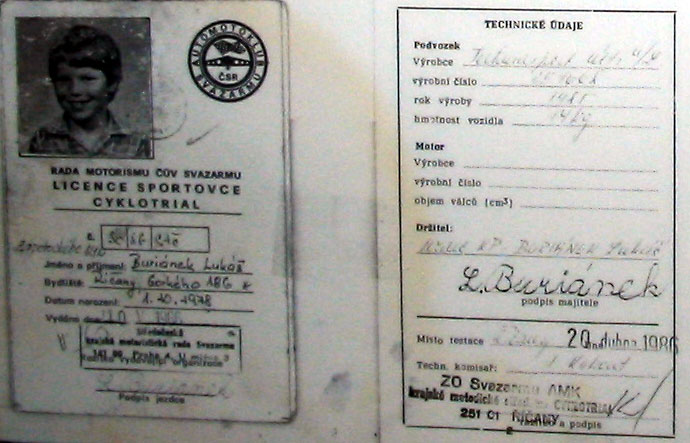 AUTOMOTOKLUB SVAZARMU
ČSR
RADA MOTORISMU ČÚV SVAZARMU
LICENCE SPORTOVCE
CYKLOTRIAL
č.
Jméno a příjmení: Buriánek Lukáš
Bydliště: Říčany, Gorkého 186
Datum narození: 1.10.1978
Vydáno dne:
Středočeská
krajská motoristická rada Svazarmu
Podpis jezdce
TECHNICKÉ ÚDAJE
Podvozek
Výrobce
výrobní číslo
rok výroby 1981
hmotnost vozidla 14 kg
Motor
Výrobce
výrobní číslo
objem válců (cm³)
Držitel:
BURIÁNEK Lukáš
L. Buriánek
podpis majitele
Místo testace 20. dubna 1986
Techn. komisař:
ZO Svazarmu AMK
krajské metodické CYKLOTRIAL
251 01 ŘÍČANY
razítko a podpis